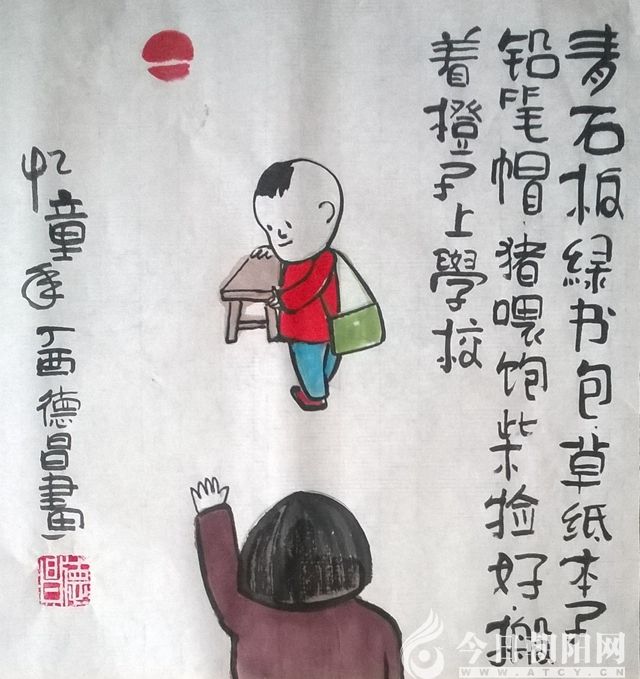 青石板绿书包草纸本子
铅笔帽猪喂饱柴捡好搬
着橙子上學校
忆童年丁酉德昌畫
德昌
今日朝阳网
WWW.ATCY.CN